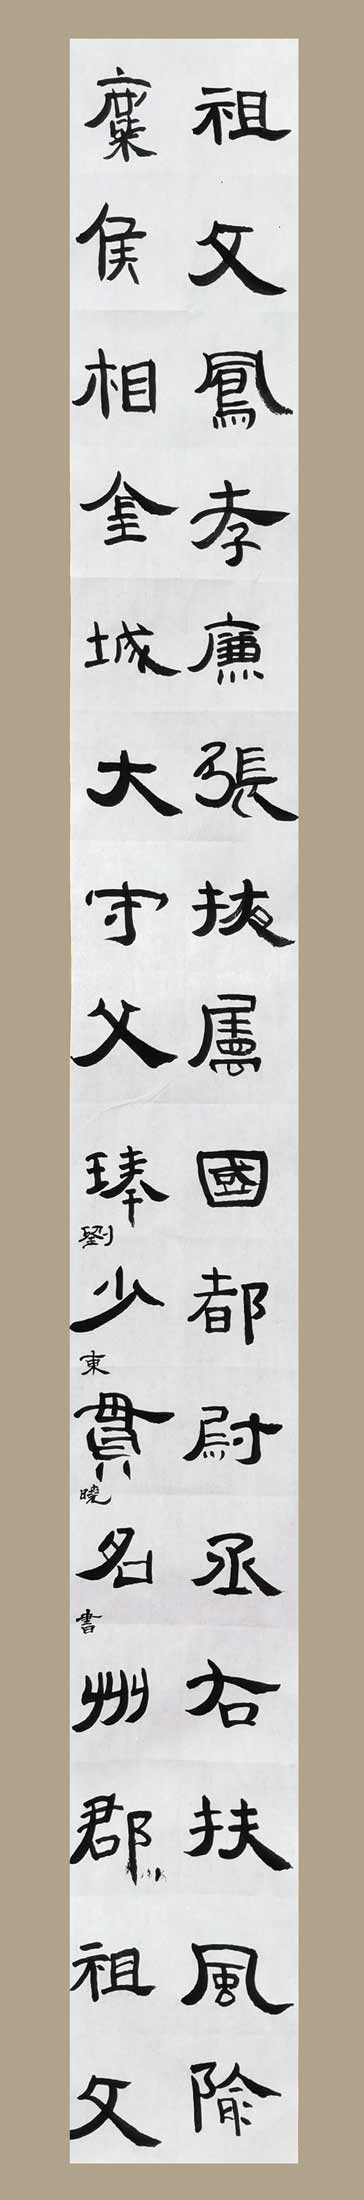 祖父鳳孝廉張掖屬國都尉丞右扶風隃
糜侯相金城大守父琫少貫名州郡祖父
劉東曉書